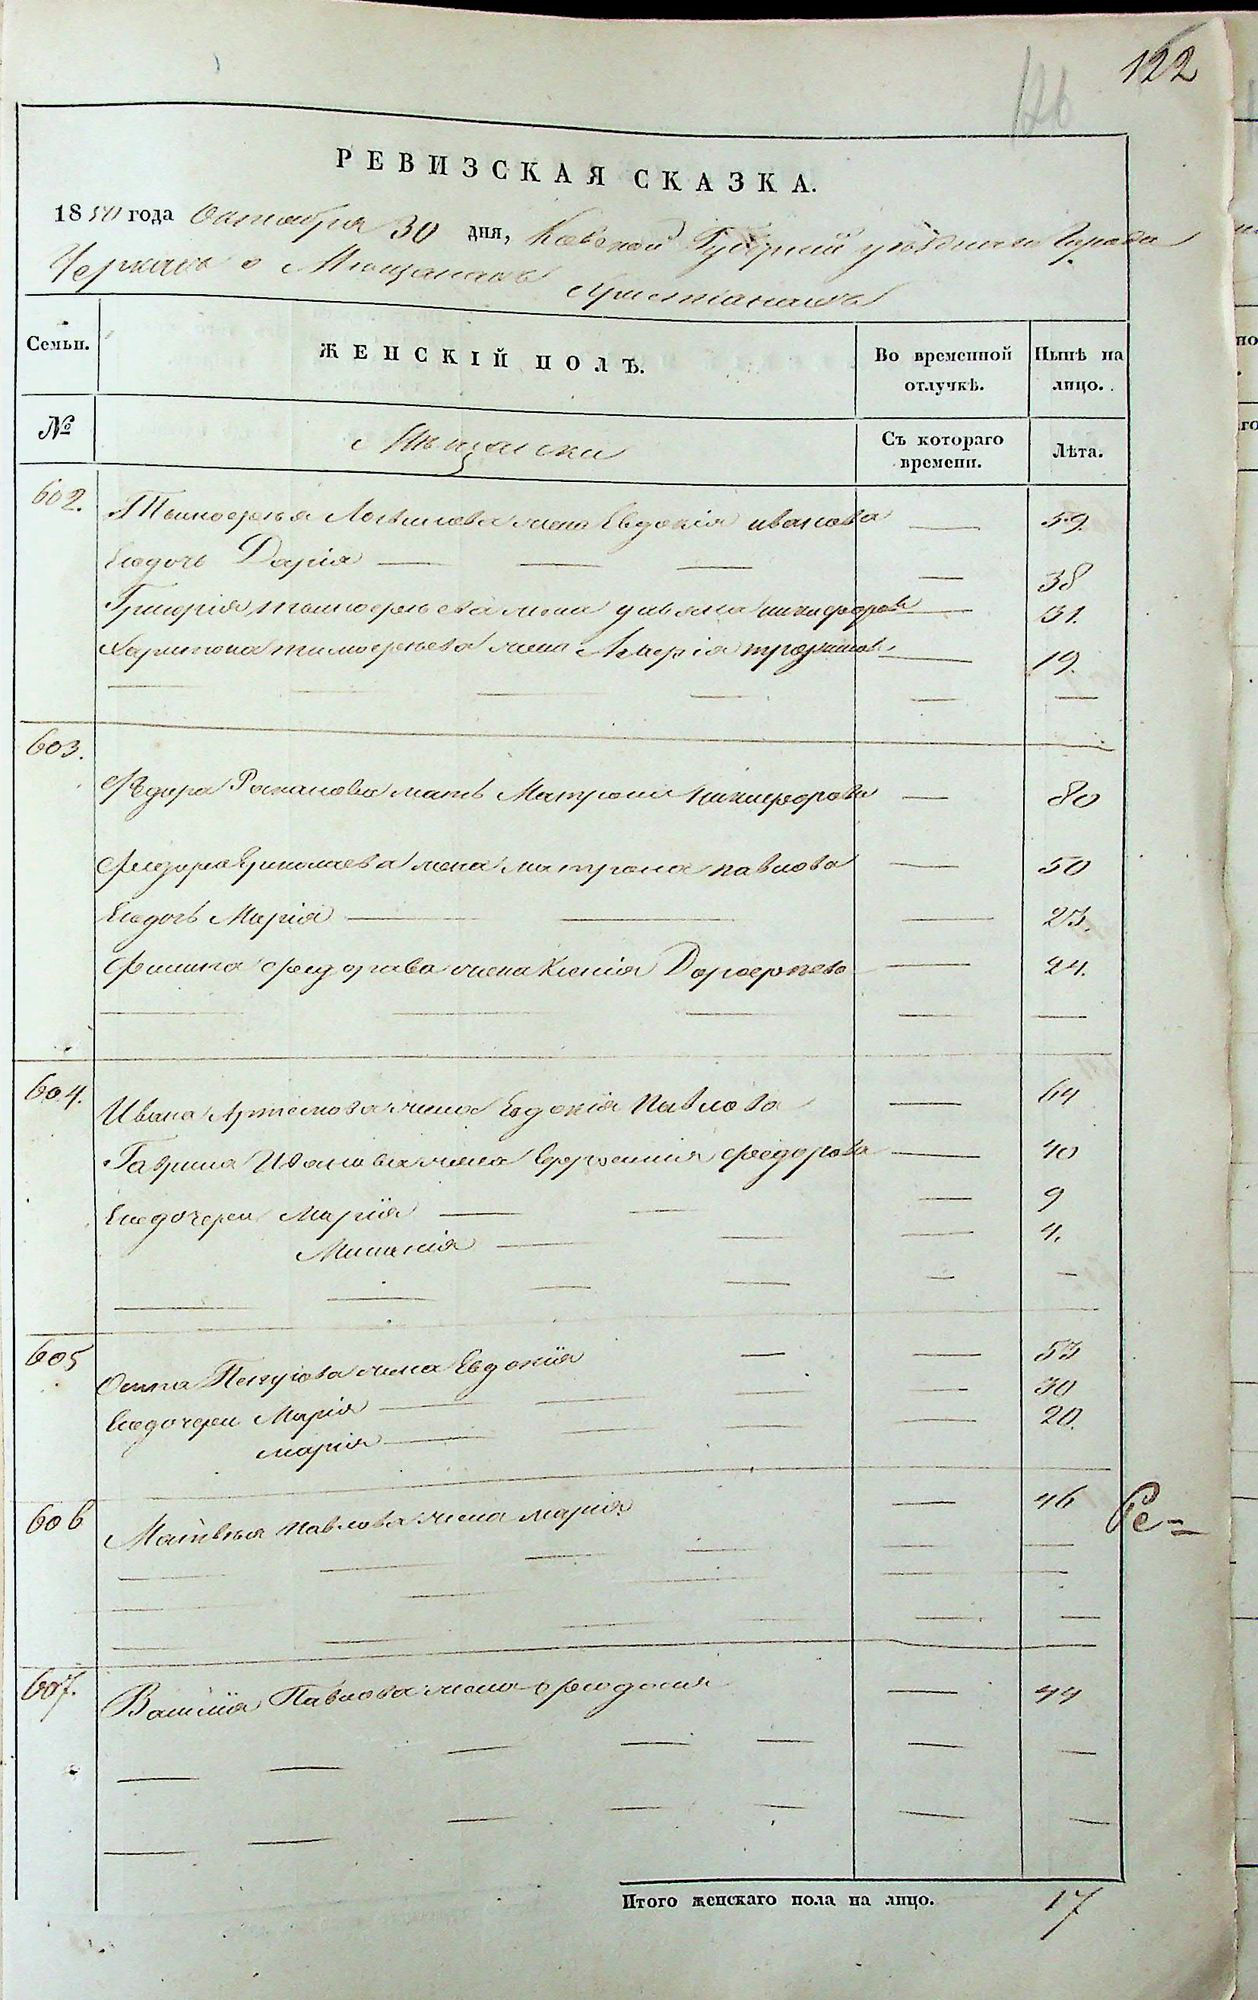 122
126
РЕВИЗСКАЯ СКАЗКА.
1850 года Октября 30 дня, Киевской Губернии уѣзднаго Города
Черкасъ о Мещанахъ Христіанахъ
Семьи. ЖЕНСКІЙ ПОЛЪ. Во временной отлучкѣ. Нынѣ на лицо.
№ Мещански Съ котораго времени. Лѣта.
602. Тимофея Логвинова жена Евдокія Иванова — 59.
Еѣ дочь Дарія — — — — 38
Григорія Тимофеева жена Ульяна Никифорова — 31.
Харитона Тимофеева жена Марія Трофимова — 19.
603.
Фѣдора Романова мать Матрона Никифорова — 80
Федора Ермолаева жена Матрона Павлова — 50
Еѣ дочь Марія — — — 23.
Филипа Федорова жена Ксенія Дорофеева — 24.
604. Ивана Артемова жена Евдокія Павлова — 64
Гаврила Иванова жена Ефросинія Федорова — 40
Еѣ дочери Марія — — — 9
Меланія — — — 4.
605 Осипа Петрова жена Евдокія — — 53
Еѣ дочери Марія — — — — 30
Марія — — — — 20.
606 Матвѣя Павлова жена Марія — 46 Ре-
607. Василія Павлова жена Феодосія — 44
Итого женскаго пола на лицо. 17